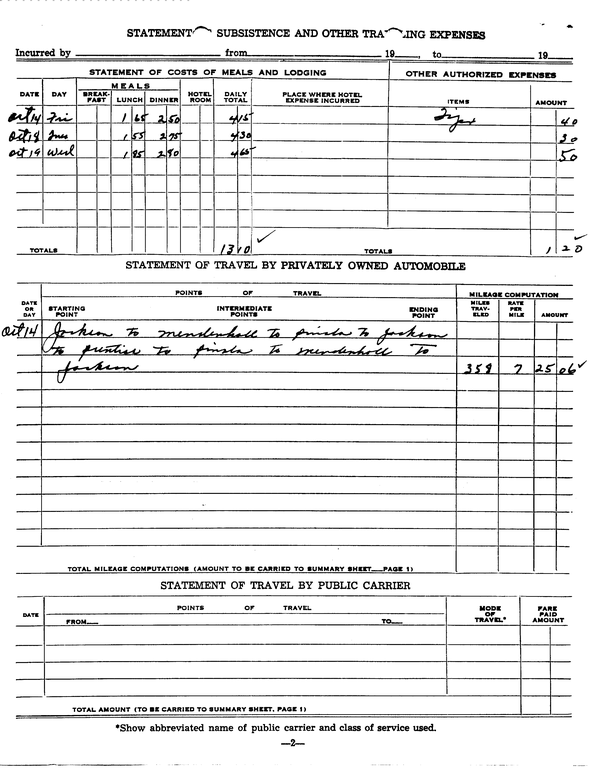 STATEMENT SUBSISTENCE AND OTHER TRA ING EXPENSES
Incurred by from 19 , to 19
STATEMENT OF COSTS OF MEALS AND LODGING OTHER AUTHORIZED EXPENSES
DATE DAY MEALS BREAK-FAST LUNCH DINNER HOTEL ROOM DAILY TOTAL PLACE WHERE HOTEL EXPENSE INCURRED ITEMS AMOUNT
Oct 14 Fri 1 65 2 50 4 15 40
Oct 18 Tues 1 55 2 75 4 30 30
Oct 19 Wed 1 85 2 80 4 65 50
TOTALS 13 10 ✓ TOTALS 1 20 ✓
STATEMENT OF TRAVEL BY PRIVATELY OWNED AUTOMOBILE
DATE OR DAY POINTS OF TRAVEL MILEAGE COMPUTATION
STARTING POINT INTERMEDIATE POINTS ENDING POINT MILES TRAV-ELED RATE PER MILE AMOUNT
Oct 14 Jackson to mendenhall to pinola to Jackson
to prentiss to pinola to mendenhall to
Jackson 358 7 25 06 ✓
TOTAL MILEAGE COMPUTATIONS (AMOUNT TO BE CARRIED TO SUMMARY SHEET PAGE 1)
STATEMENT OF TRAVEL BY PUBLIC CARRIER
DATE POINTS OF TRAVEL MODE OF TRAVEL* FARE PAID AMOUNT
FROM TO
TOTAL AMOUNT (TO BE CARRIED TO SUMMARY SHEET, PAGE 1)
*Show abbreviated name of public carrier and class of service used.
—2—